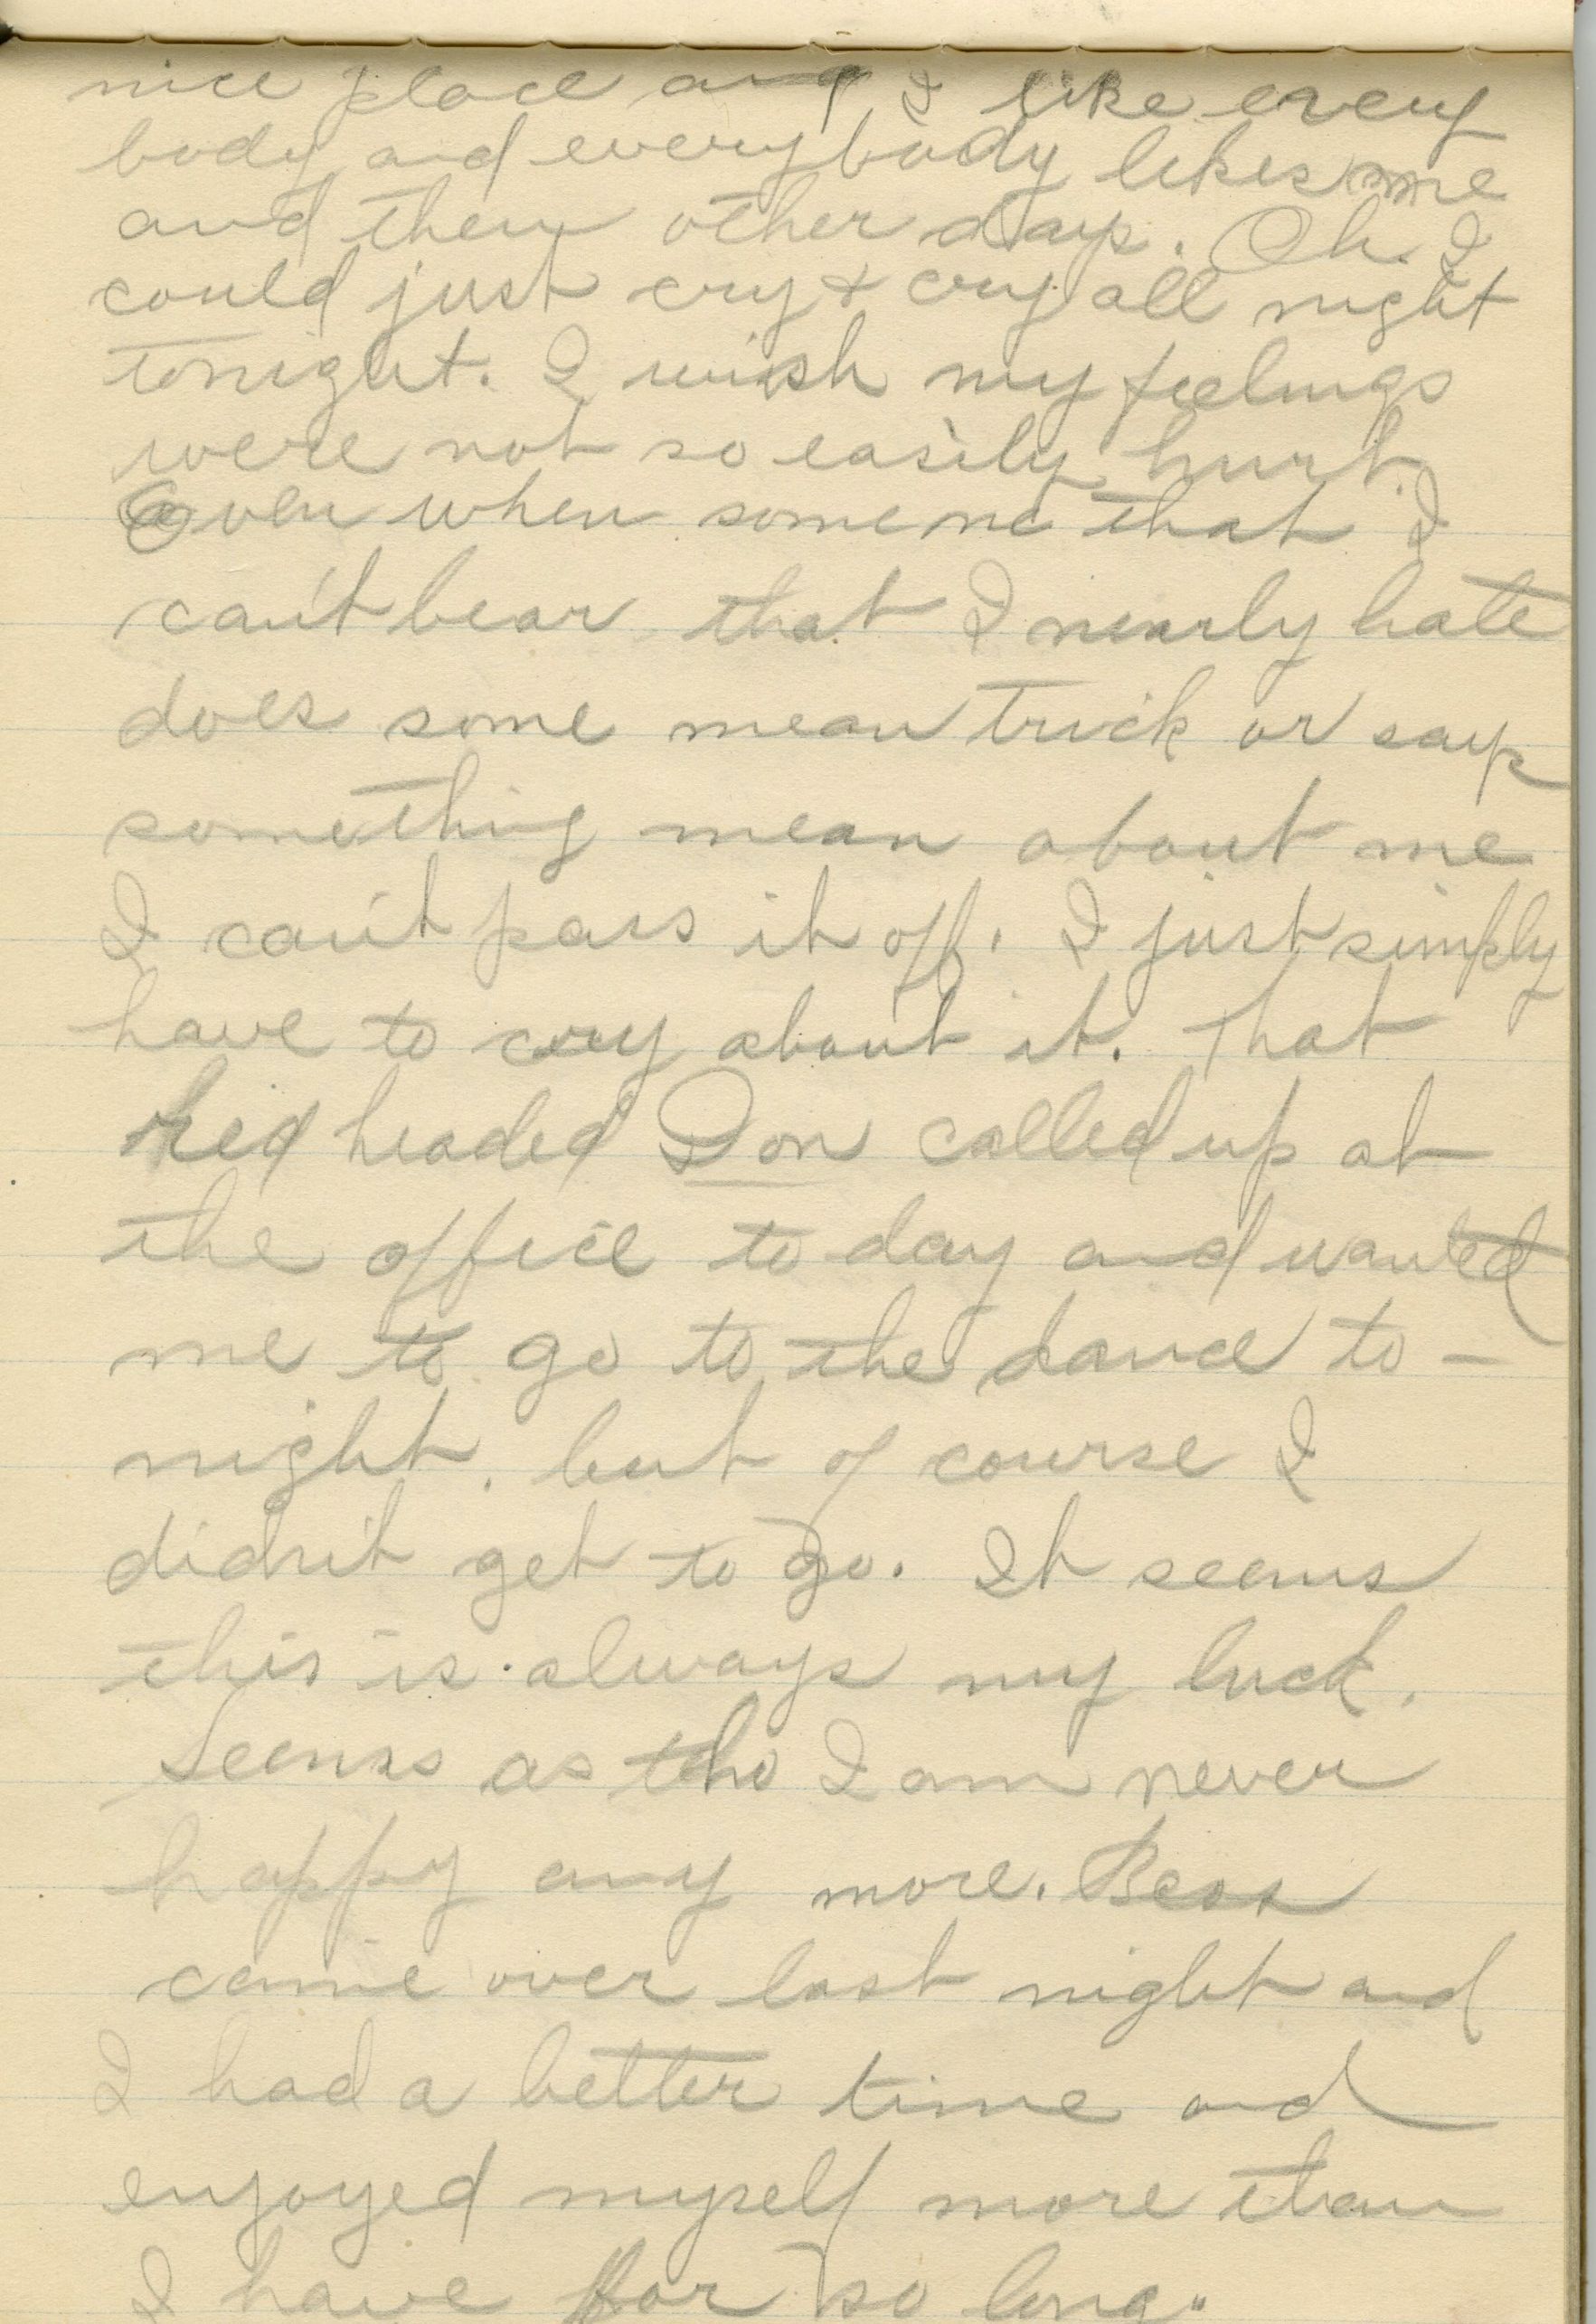 nice place and I like every
body and everybody likes me
and then other days. Oh. I
could just cry & cry all night
tonight. I wish my feelings
were not so easily hurt.
Even when someone that I
can't bear that I nearly hate
does some mean trick or says
something mean about me
I can't pass it off. I just simply
have to cry about it. That
Red headed Don called up at
the office to day and wanted
me to go to the dance to-
night. but of course I
didn't get to go. It seems
this is always my luck.
Seems as tho I am never
happy any more. Bess
came over last night and
I had a better time and
enjoyed myself more than
I have for so long.